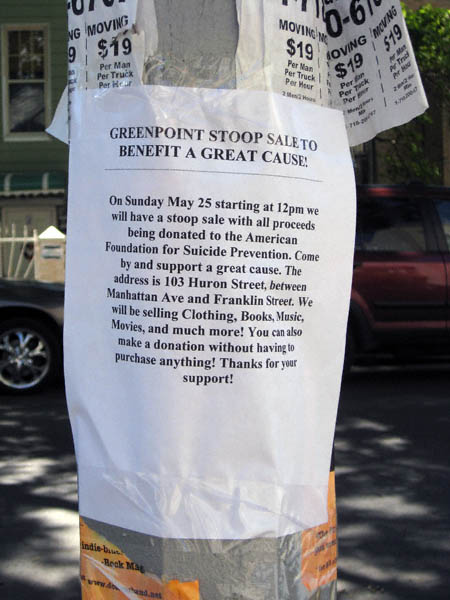 MOVING
$19
Per Man
Per Truck
Per Hour
MOVING
$19
Per Man
Per Truck
Per Hour
MOVING
$19
Per Man
Per Truck
Per Hour
MOVING
$19
Per Man
Per Truck
Per Hour
GREENPOINT STOOP SALE TO
BENEFIT A GREAT CAUSE!
On Sunday May 25 starting at 12pm we
will have a stoop sale with all proceeds
being donated to the American
Foundation for Suicide Prevention. Come
by and support a great cause. The
address is 103 Huron Street, between
Manhattan Ave and Franklin Street. We
will be selling Clothing, Books, Music,
Movies, and much more! You can also
make a donation without having to
purchase anything! Thanks for your
support!
-Rock Mag